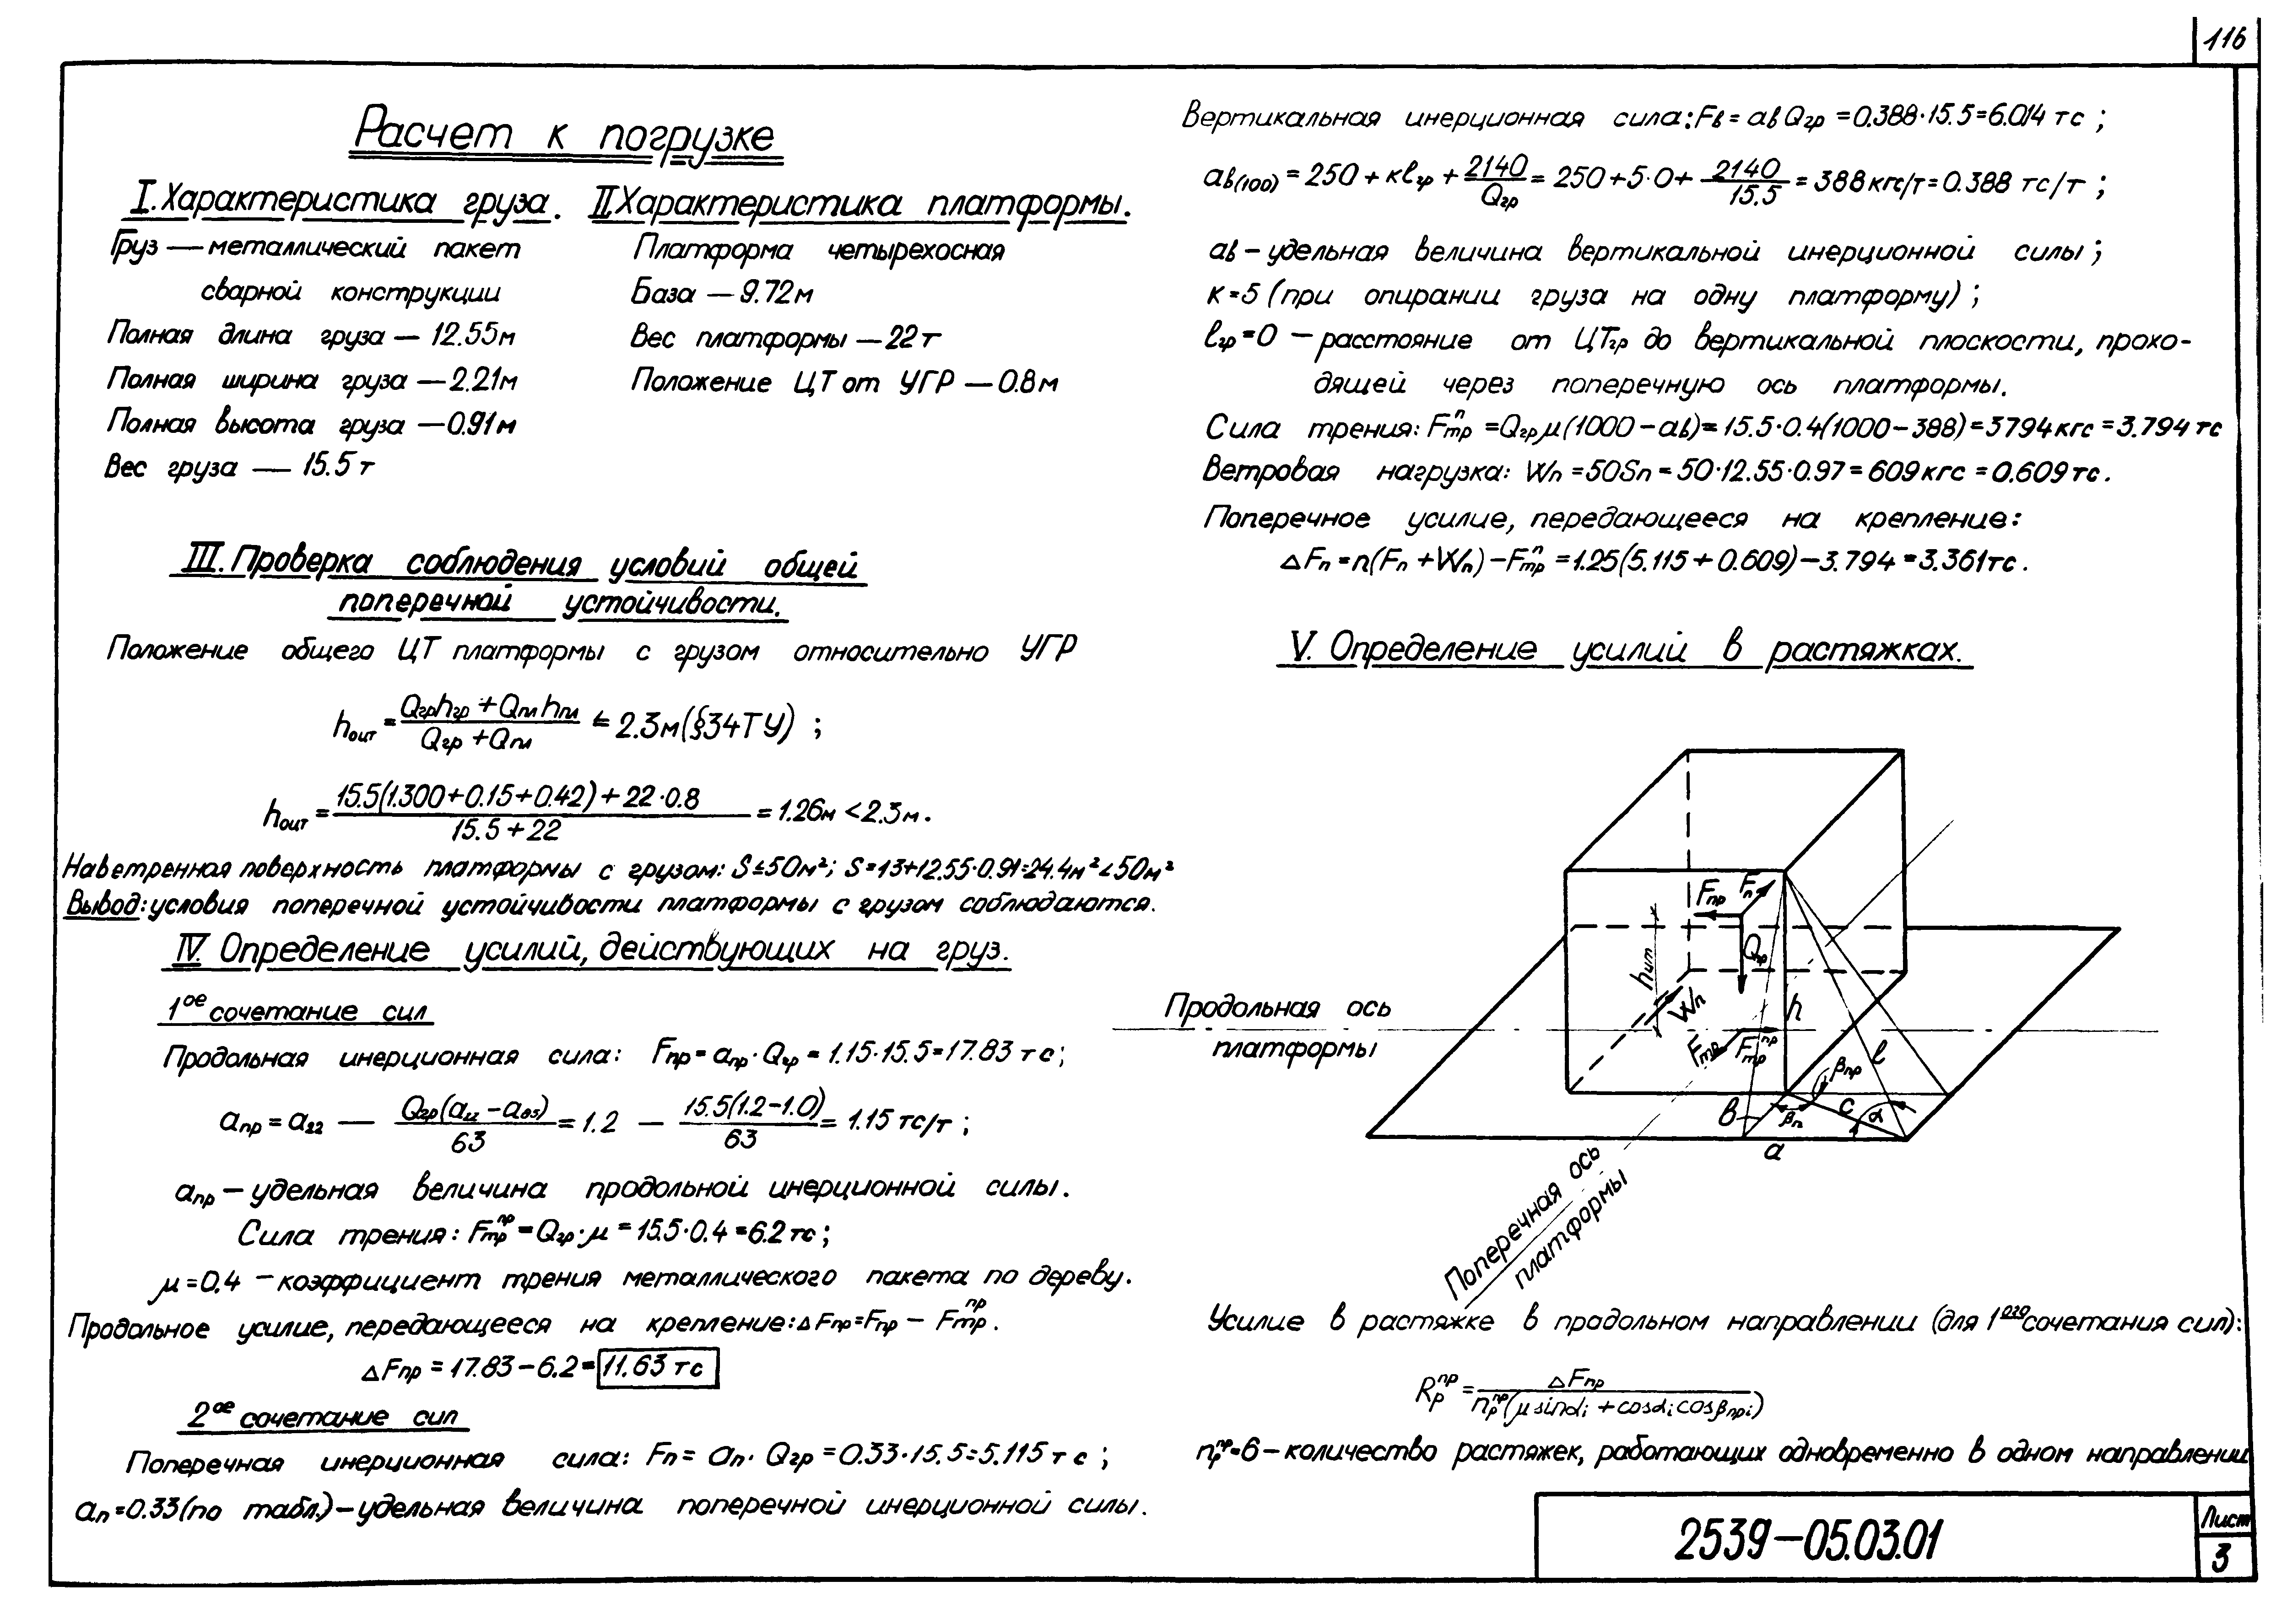 116
Расчет к погрузке
I. Характеристика груза.
Груз — металлический пакет
сварной конструкции
Полная длина груза — 12.55м
Полная ширина груза — 2.21м
Полная высота груза — 0.91м
Вес груза — 15.5т
II. Характеристика платформы.
Платформа четырехосная
База — 9.72м
Вес платформы — 22т
Положение ЦТ от УГР — 0.8м
III. Проверка соблюдения условий общей
поперечной устойчивости.
Положение общего ЦТ платформы с грузом относительно УГР
hоцт = (Qгр hгр + Qпл hпл) / (Qгр + Qпл) ≤ 2.3м (§34 ТУ) ;
hоцт = (15.5(1.300+0.15+0.42)+22·0.8) / (15.5+22) = 1.26м < 2.3м.
Наветренная поверхность платформы с грузом: S≤50м²; S=13+12.55·0.91=24.4м²<50м²
Вывод: условия поперечной устойчивости платформы с грузом соблюдаются.
IV. Определение усилий, действующих на груз.
1ое сочетание сил
Продольная инерционная сила: Fпр = aпр · Qгр = 1.15·15.5 = 17.83 тс;
aпр = a22 — Qгр(a22 - a85) / 63 = 1.2 — 15.5(1.2-1.0) / 63 = 1.15 тс/т ;
aпр — удельная величина продольной инерционной силы.
Сила трения: Fтр^пр = Qгр·μ = 15.5·0.4 = 6.2 тс;
μ=0.4 — коэффициент трения металлического пакета по дереву.
Продольное усилие, передающееся на крепление: ΔFпр = Fпр — Fтр^пр.
ΔFпр = 17.83 - 6.2 = 11.63 тс
2ое сочетание сил
Поперечная инерционная сила: Fп = aп · Qгр = 0.33·15.5 = 5.115 тс ;
aп=0.33 (по табл.) — удельная величина поперечной инерционной силы.
Вертикальная инерционная сила: Fв = aв Qгр = 0.388·15.5 = 6.014 тс ;
aв(100) = 250 + кℓгр + 2140 / Qгр = 250 + 5·0 + 2140 / 15.5 = 388 кгс/т = 0.388 тс/т ;
aв — удельная величина вертикальной инерционной силы ;
к=5 (при опирании груза на одну платформу) ;
ℓгр=0 — расстояние от ЦТгр до вертикальной плоскости, прохо-
дящей через поперечную ось платформы.
Сила трения: Fтр^п = Qгр μ(1000 - aв) = 15.5·0.4(1000-388) = 3794 кгс = 3.794 тс
Ветровая нагрузка: Wп = 50Sп = 50·12.55·0.97 = 609 кгс = 0.609 тс.
Поперечное усилие, передающееся на крепление:
ΔFп = n(Fп + Wп) - Fтр^п = 1.25(5.115 + 0.609) - 3.794 = 3.361 тс.
V. Определение усилий в растяжках.
Fпр
Fп
Qгр
hцт
Wп
h
Fтр
Fтр^пр
ℓ
βпр
в
βп
c
α
a
Продольная ось
платформы
Поперечная ось
платформы
Усилие в растяжке в продольном направлении (для 1ого сочетания сил):
Rр^пр = ΔFпр / nр^пр(μ sinαi + cosαi cosβпрi)
nр^пр=6 — количество растяжек, работающих одновременно в одном направлении
2539-05.03.01
Лист
3